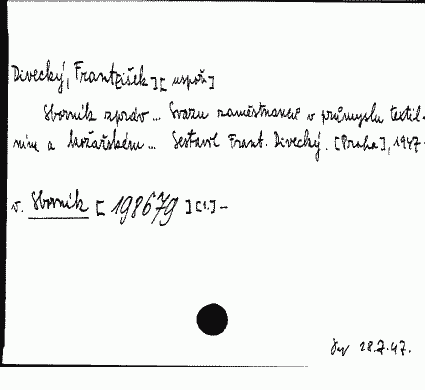 Divecký, Frant[išek] [uspoř.]
Sborník zpráv... Svazu zaměstnanců v průmyslu textil-
ním a kožařském... Sestavil Frant. Divecký. [Praha], 1947-
v. Sborník [198679] [1.] -
28.7.47.